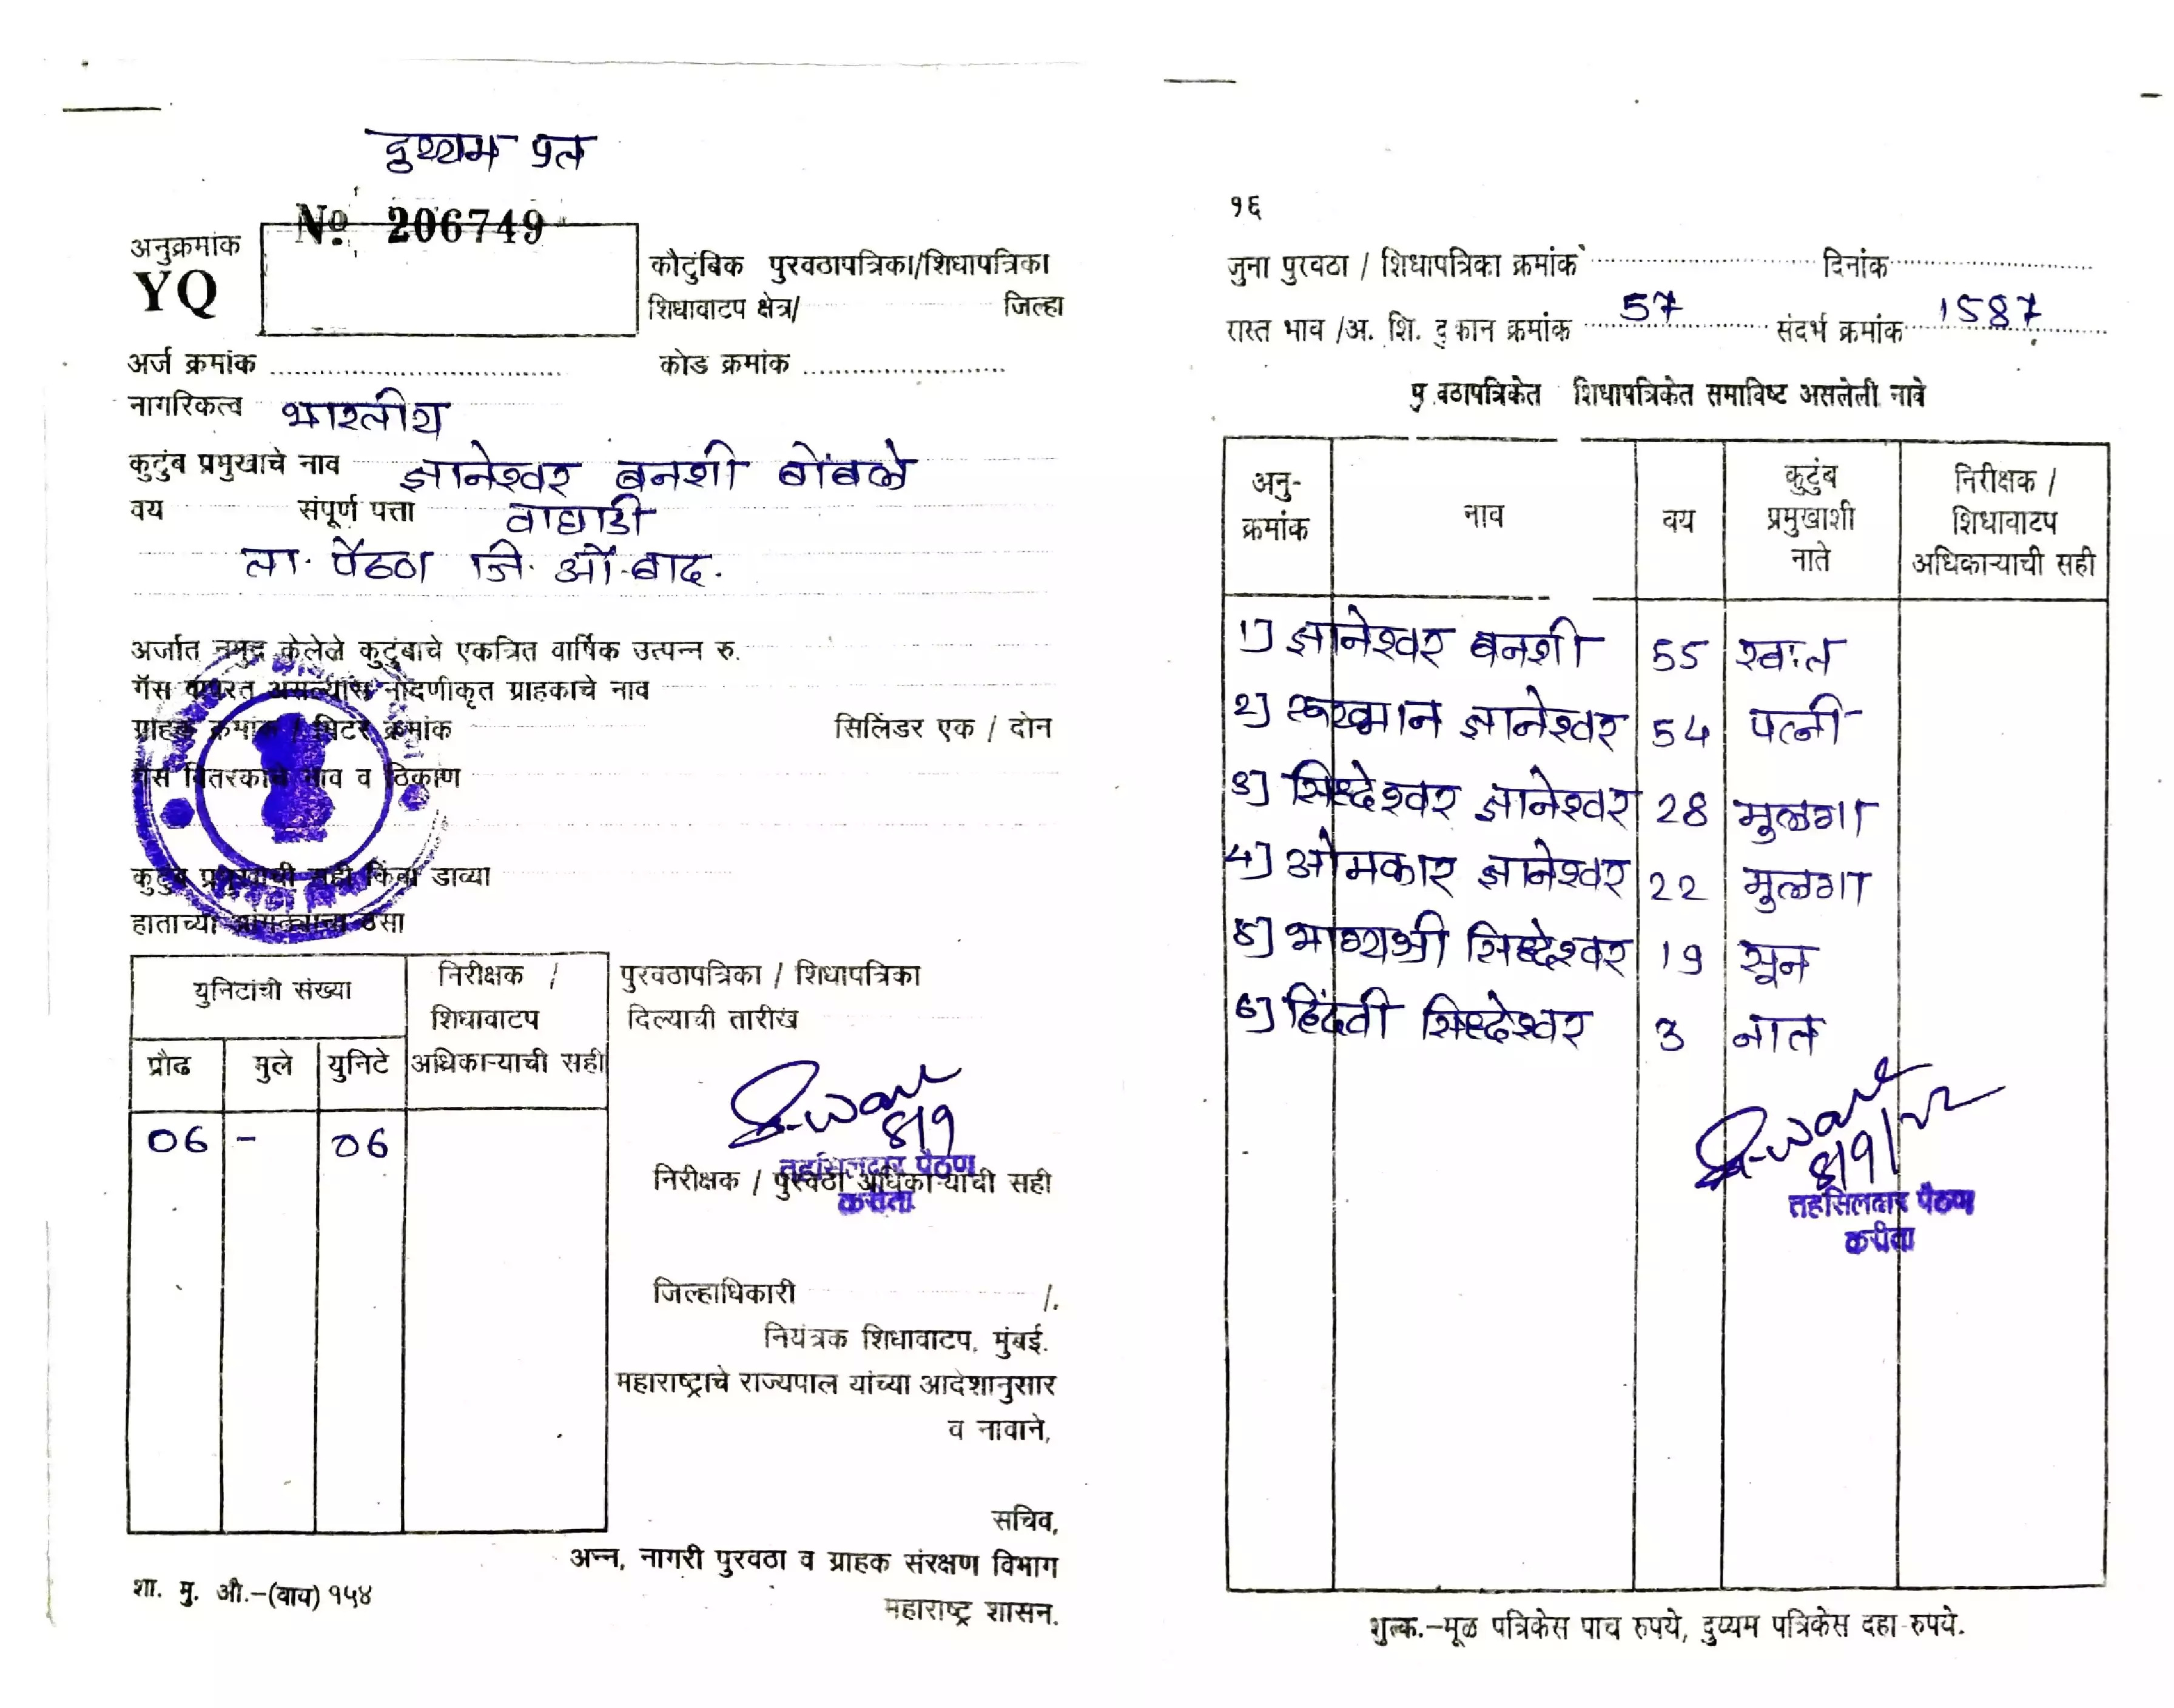 दुय्यम प्रत
No 206749
अनुक्रमांक
YQ
कौटुंबिक पुरवठापत्रिका/शिधापत्रिका
शिधावाटप क्षेत्र/ जिल्हा
अर्ज क्रमांक कोड क्रमांक
नागरिकत्व भारतीय
कुटुंब प्रमुखाचे नाव ज्ञानेश्वर बनशी बोंबले
वय संपूर्ण पत्ता वाघाडी
ता. पैठण जि. औ.बाद.
अर्जात नमुद केलेले कुटुंबाचे एकत्रित वार्षिक उत्पन्न रु.
गॅस वापरत असल्यास नोंदणीकृत ग्राहकाचे नाव
ग्राहक क्रमांक / मिटर क्रमांक सिलिंडर एक / दोन
गॅस वितरकाचे नाव व ठिकाण
कुटुंब प्रमुखाची सही किंवा डाव्या
हाताच्या अंगठ्याचा ठसा
युनिटांची संख्या
प्रौढ मुले युनिटे
निरीक्षक /
शिधावाटप
अधिकाऱ्याची सही
06 - 06
पुरवठापत्रिका / शिधापत्रिका
दिल्याची तारीख
8/9
तहसिलदार पैठण
करीता
निरीक्षक / पुरवठा अधिकाऱ्याची सही
जिल्हाधिकारी /.
नियंत्रक शिधावाटप, मुंबई.
महाराष्ट्राचे राज्यपाल यांच्या आदेशानुसार
व नावाने,
सचिव,
अन्न, नागरी पुरवठा व ग्राहक संरक्षण विभाग
महाराष्ट्र शासन.
शा. मु. औ.-(वाय) १५४
१६
जुना पुरवठा / शिधापत्रिका क्रमांक दिनांक
रास्त भाव /अ. शि. दुकान क्रमांक 57 संदर्भ क्रमांक 1587
पु वठापत्रिकेत शिधापत्रिकेत समाविष्ट असलेली नावे
अनु-
क्रमांक
नाव
वय
कुटुंब
प्रमुखाशी
नाते
निरीक्षक /
शिधावाटप
अधिकाऱ्याची सही
1] ज्ञानेश्वर बनशी 55 स्वःत
2] रूख्मान ज्ञानेश्वर 54 पत्नी
3] सिध्देश्वर ज्ञानेश्वर 28 मुलगा
4] ओमकार ज्ञानेश्वर 22 मुलगा
5] भाग्यश्री सिध्देश्वर 19 सून
6] हिंदवी सिध्देश्वर 3 नात
8/9/22
तहसिलदार पैठण
करीता
शुल्क.-मूळ पत्रिकेस पाच रुपये, दुय्यम पत्रिकेस दहा रुपये.